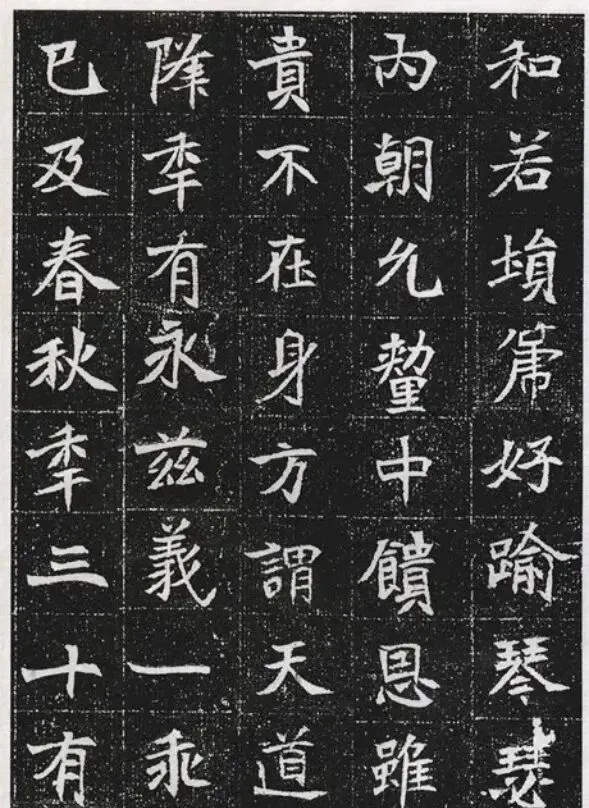 和若塤篪好踰琴瑟
內朝允釐中饋恩雖
貴不在身方謂天道
降秊有永兹義一乖
巳及春秋秊三十有